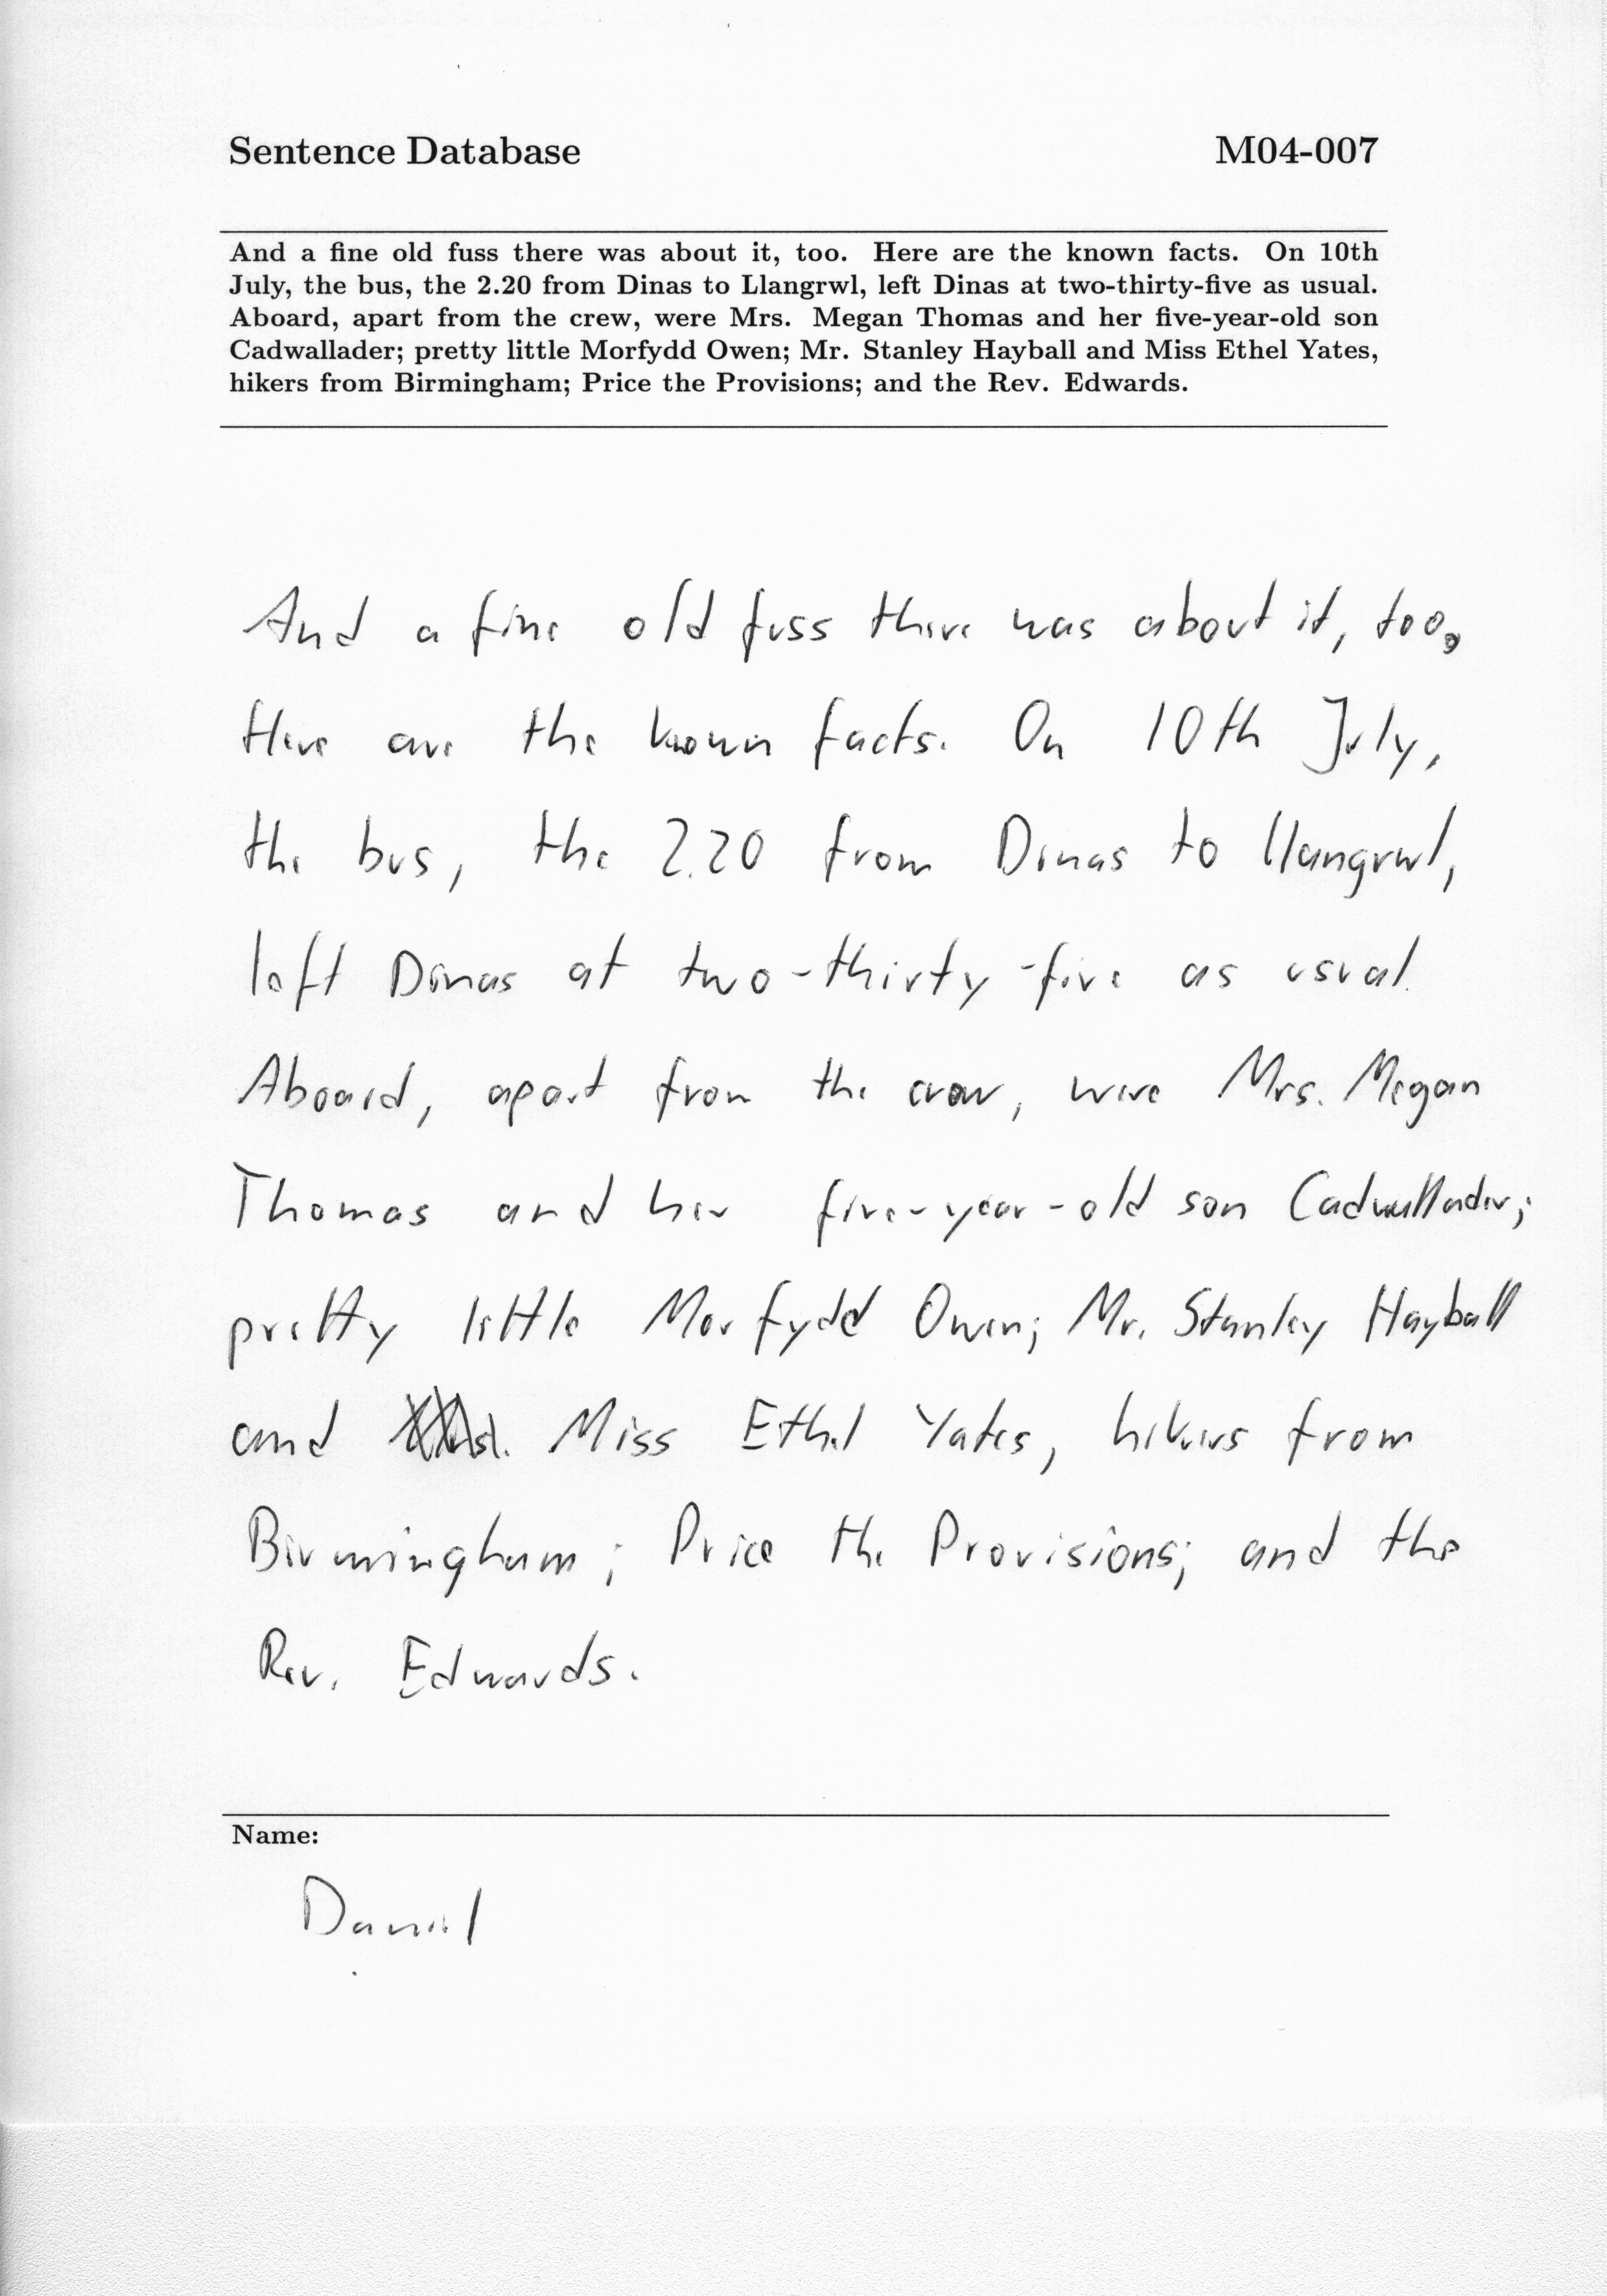 Sentence Database M04-007
And a fine old fuss there was about it, too. Here are the known facts. On 10th
July, the bus, the 2.20 from Dinas to Llangrwl, left Dinas at two-thirty-five as usual.
Aboard, apart from the crew, were Mrs. Megan Thomas and her five-year-old son
Cadwallader; pretty little Morfydd Owen; Mr. Stanley Hayball and Miss Ethel Yates,
hikers from Birmingham; Price the Provisions; and the Rev. Edwards.
And a fine old fuss there was about it, too.
Here are the known facts. On 10th July,
the bus, the 2.20 from Dinas to Llangrwl,
left Dinas at two-thirty-five as usual.
Aboard, apart from the crew, were Mrs. Megan
Thomas and her five-year-old son Cadwallader;
pretty little Morfydd Owen; Mr. Stanley Hayball
and Miss Ethel Yates, hikers from
Birmingham; Price the Provisions; and the
Rev. Edwards.
Name:
Daniel